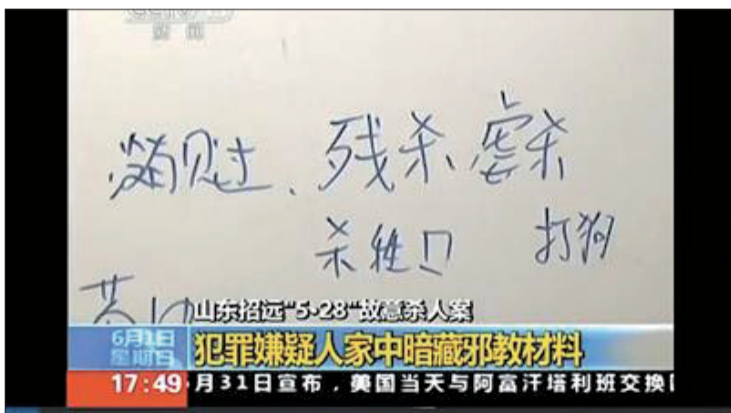 新闻
没见过、残杀 虐杀
杀牲口 打狗
山东招远“5·28”故意杀人案
6月1日
星期日
犯罪嫌疑人家中暗藏邪教材料
17:49
月31日宣布，美国当天与阿富汗塔利班交换